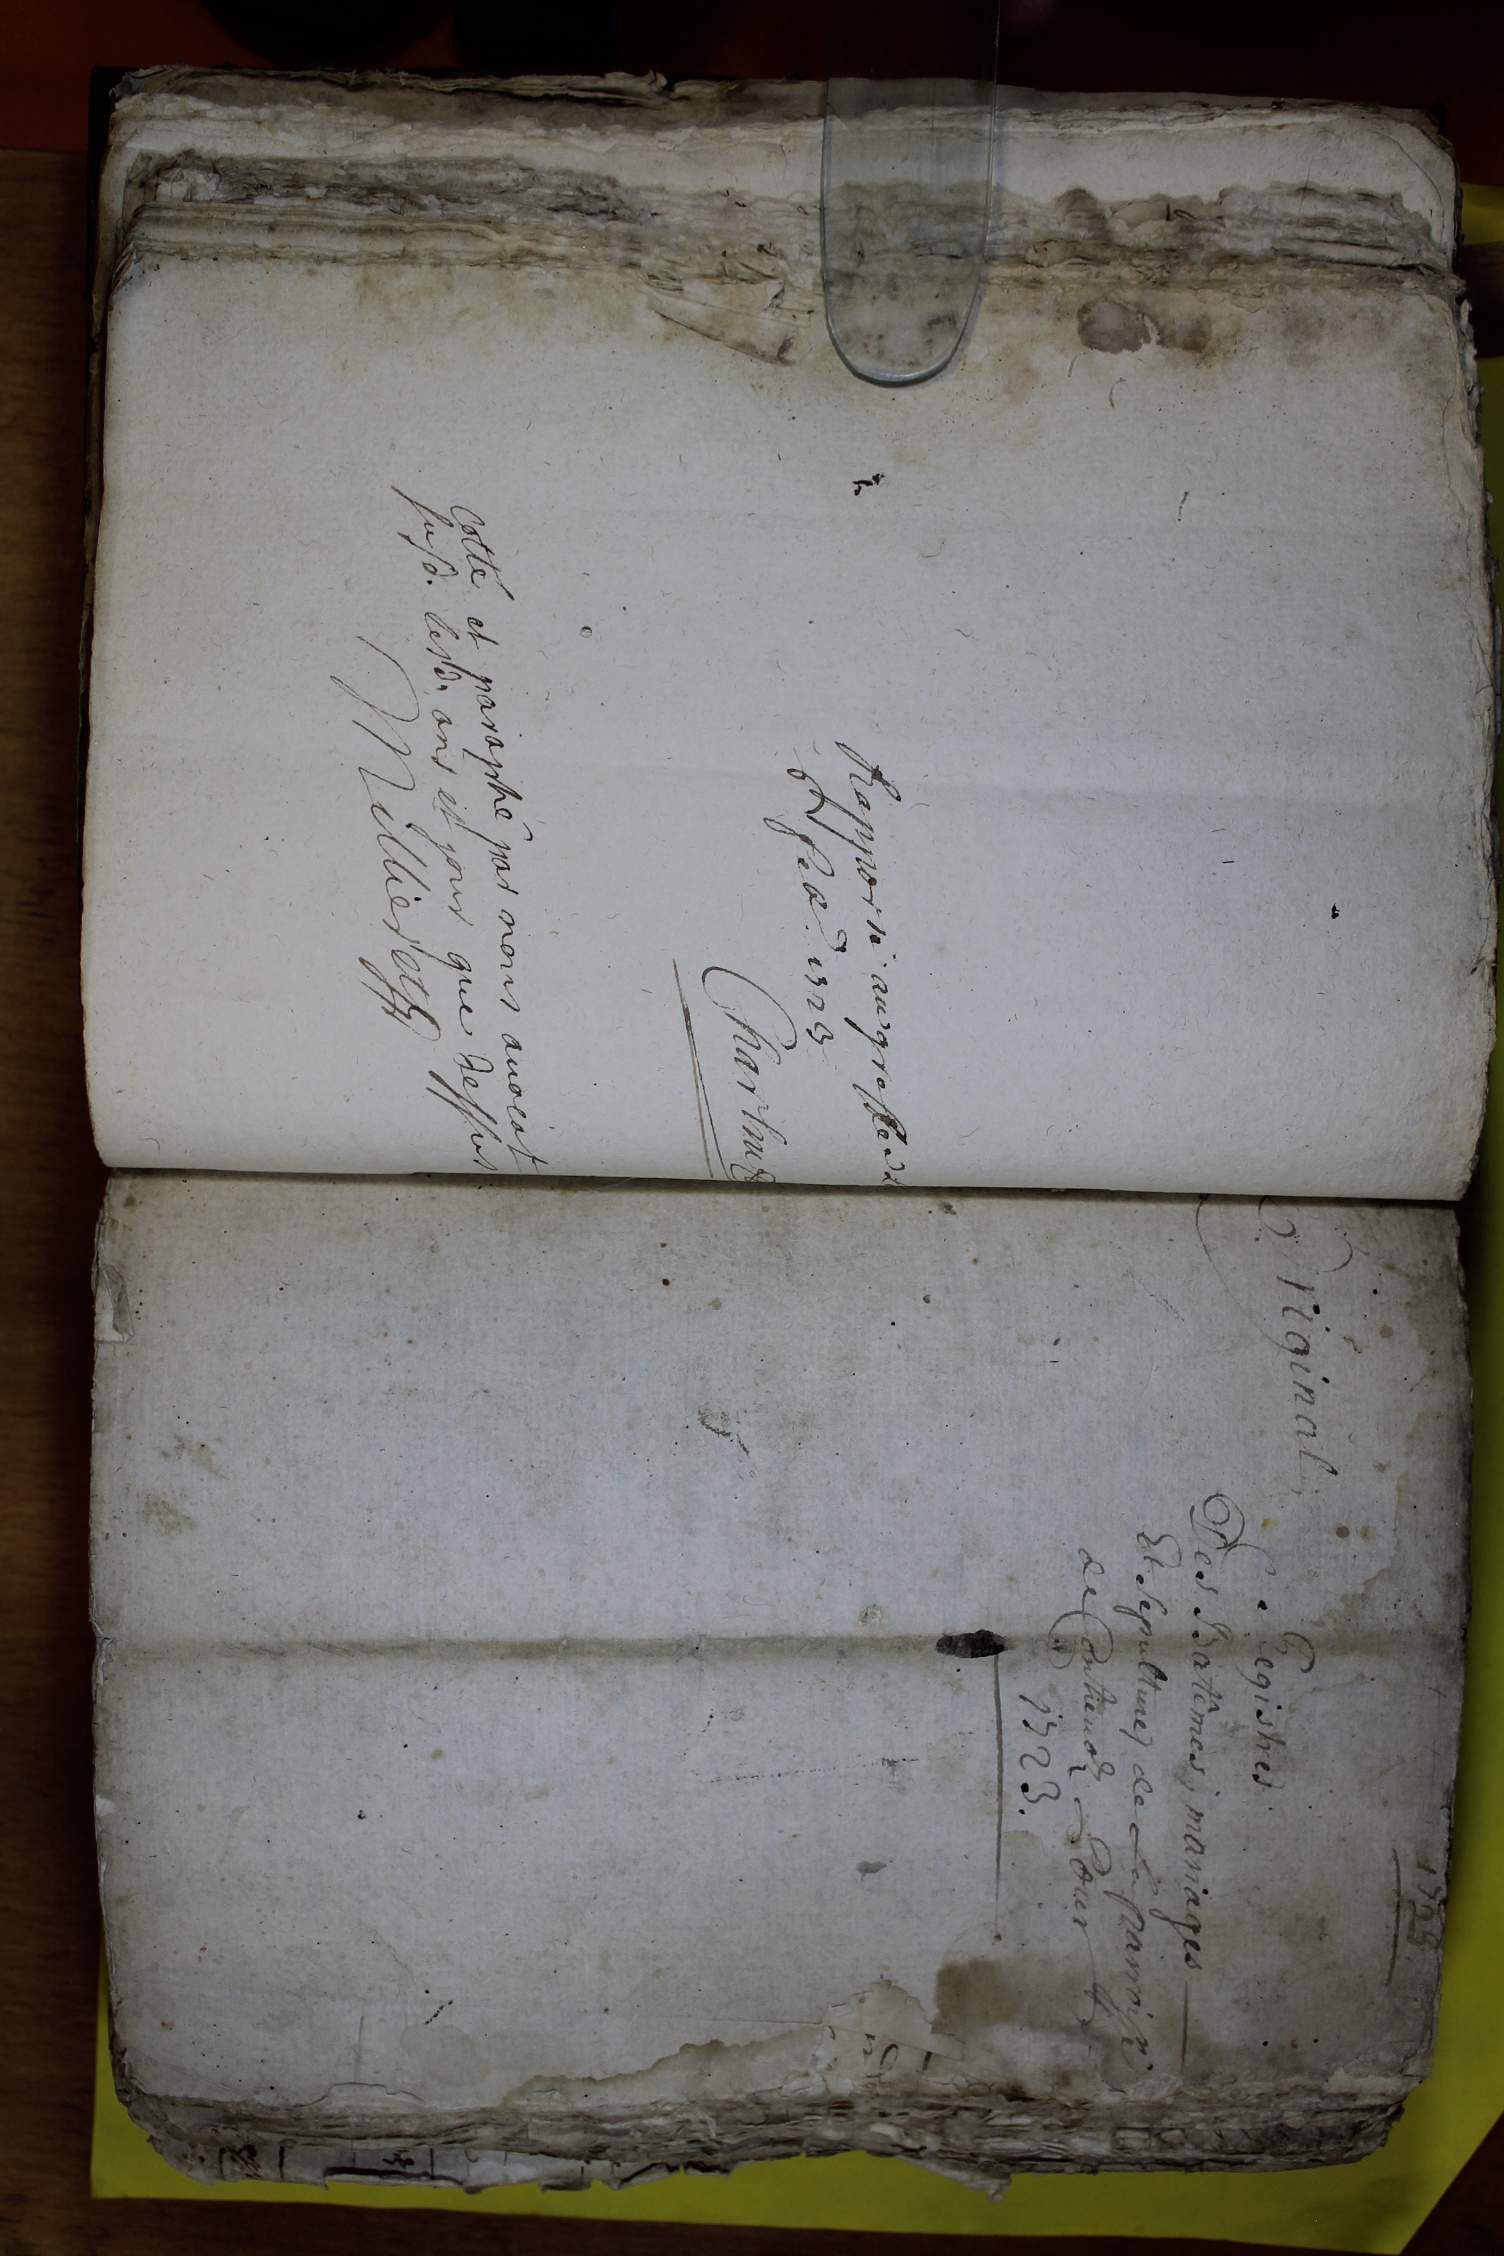 Rapporté au greffe le 2
fed. 1723
Chartrus
Cotté et paraphé par nous avocat
susd. lesd. ans et jour que dessus
Millier
1723
Original
Registres
Des Batêmes, mariages
Et Sepultures de La parroisse
de Pour
1723.